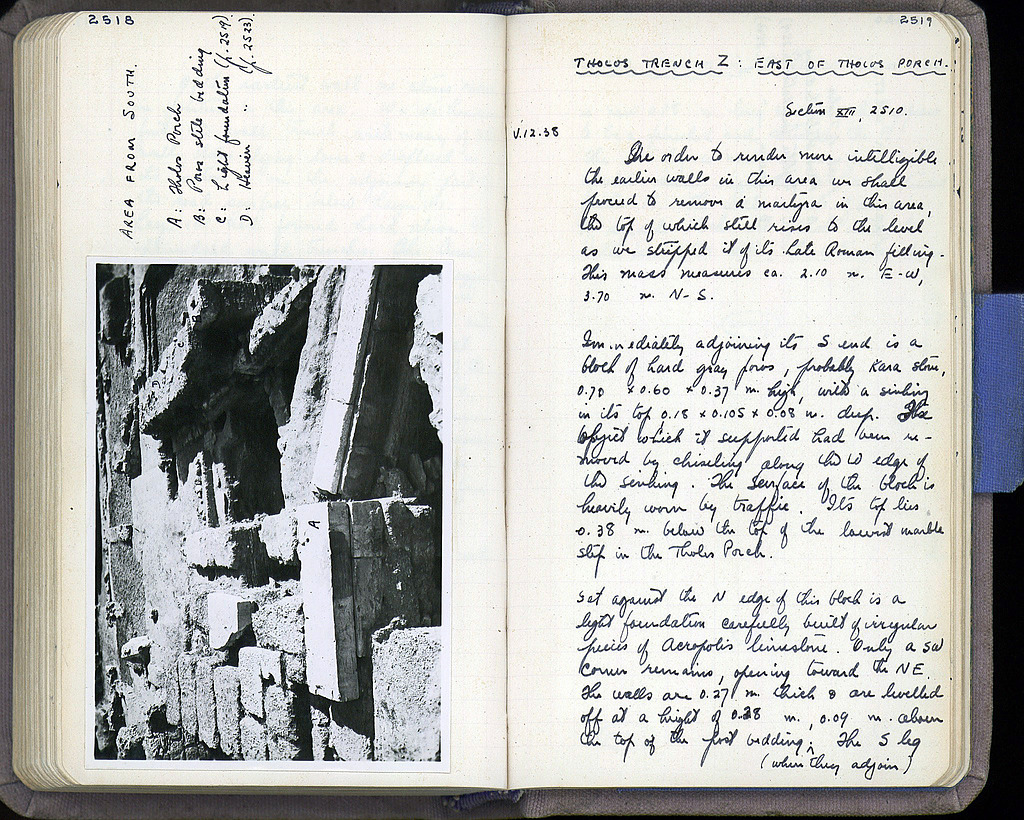 2518
AREA FROM SOUTH.
A: Tholos Porch
B: Poros stele bedding
C: Light foundation (cf. 2519).
D: Heavier " (cf. 2523).
A
2519
THOLOS TRENCH Z: EAST OF THOLOS PORCH.
Section XIII, 2510.
V.12.38
In order to render more intelligible
the earlier walls in this area we shall
proceed to remove a in this area,
the top of which still rises to the level
as we stripped it of its Late Roman filling.
This mass measures ca. 2.10 m. E-W,
3.70 m. N-S.
Immediately adjoining its S end is a
block of hard gray poros, probably Kara stone,
0.70 x 0.60 x 0.37 m. high, with a sinking
in its top 0.18 x 0.105 x 0.08 m. deep. The
object which it supported had been re-
moved by chiseling along the W edge of
the sinking. The surface of the block is
heavily worn by traffic. Its top lies
0.38 m. below the top of the lowest marble
step in the Tholos Porch.
Set against the N edge of this block is a
light foundation carefully built of irregular
pieces of Acropolis limestone. Only a SW
corner remains, opening toward the NE.
The walls are 0.27 m. thick & are levelled
off at a height of 0.28 m., 0.09 m. above
the top of the post bedding. The S leg
(when they adjoin)